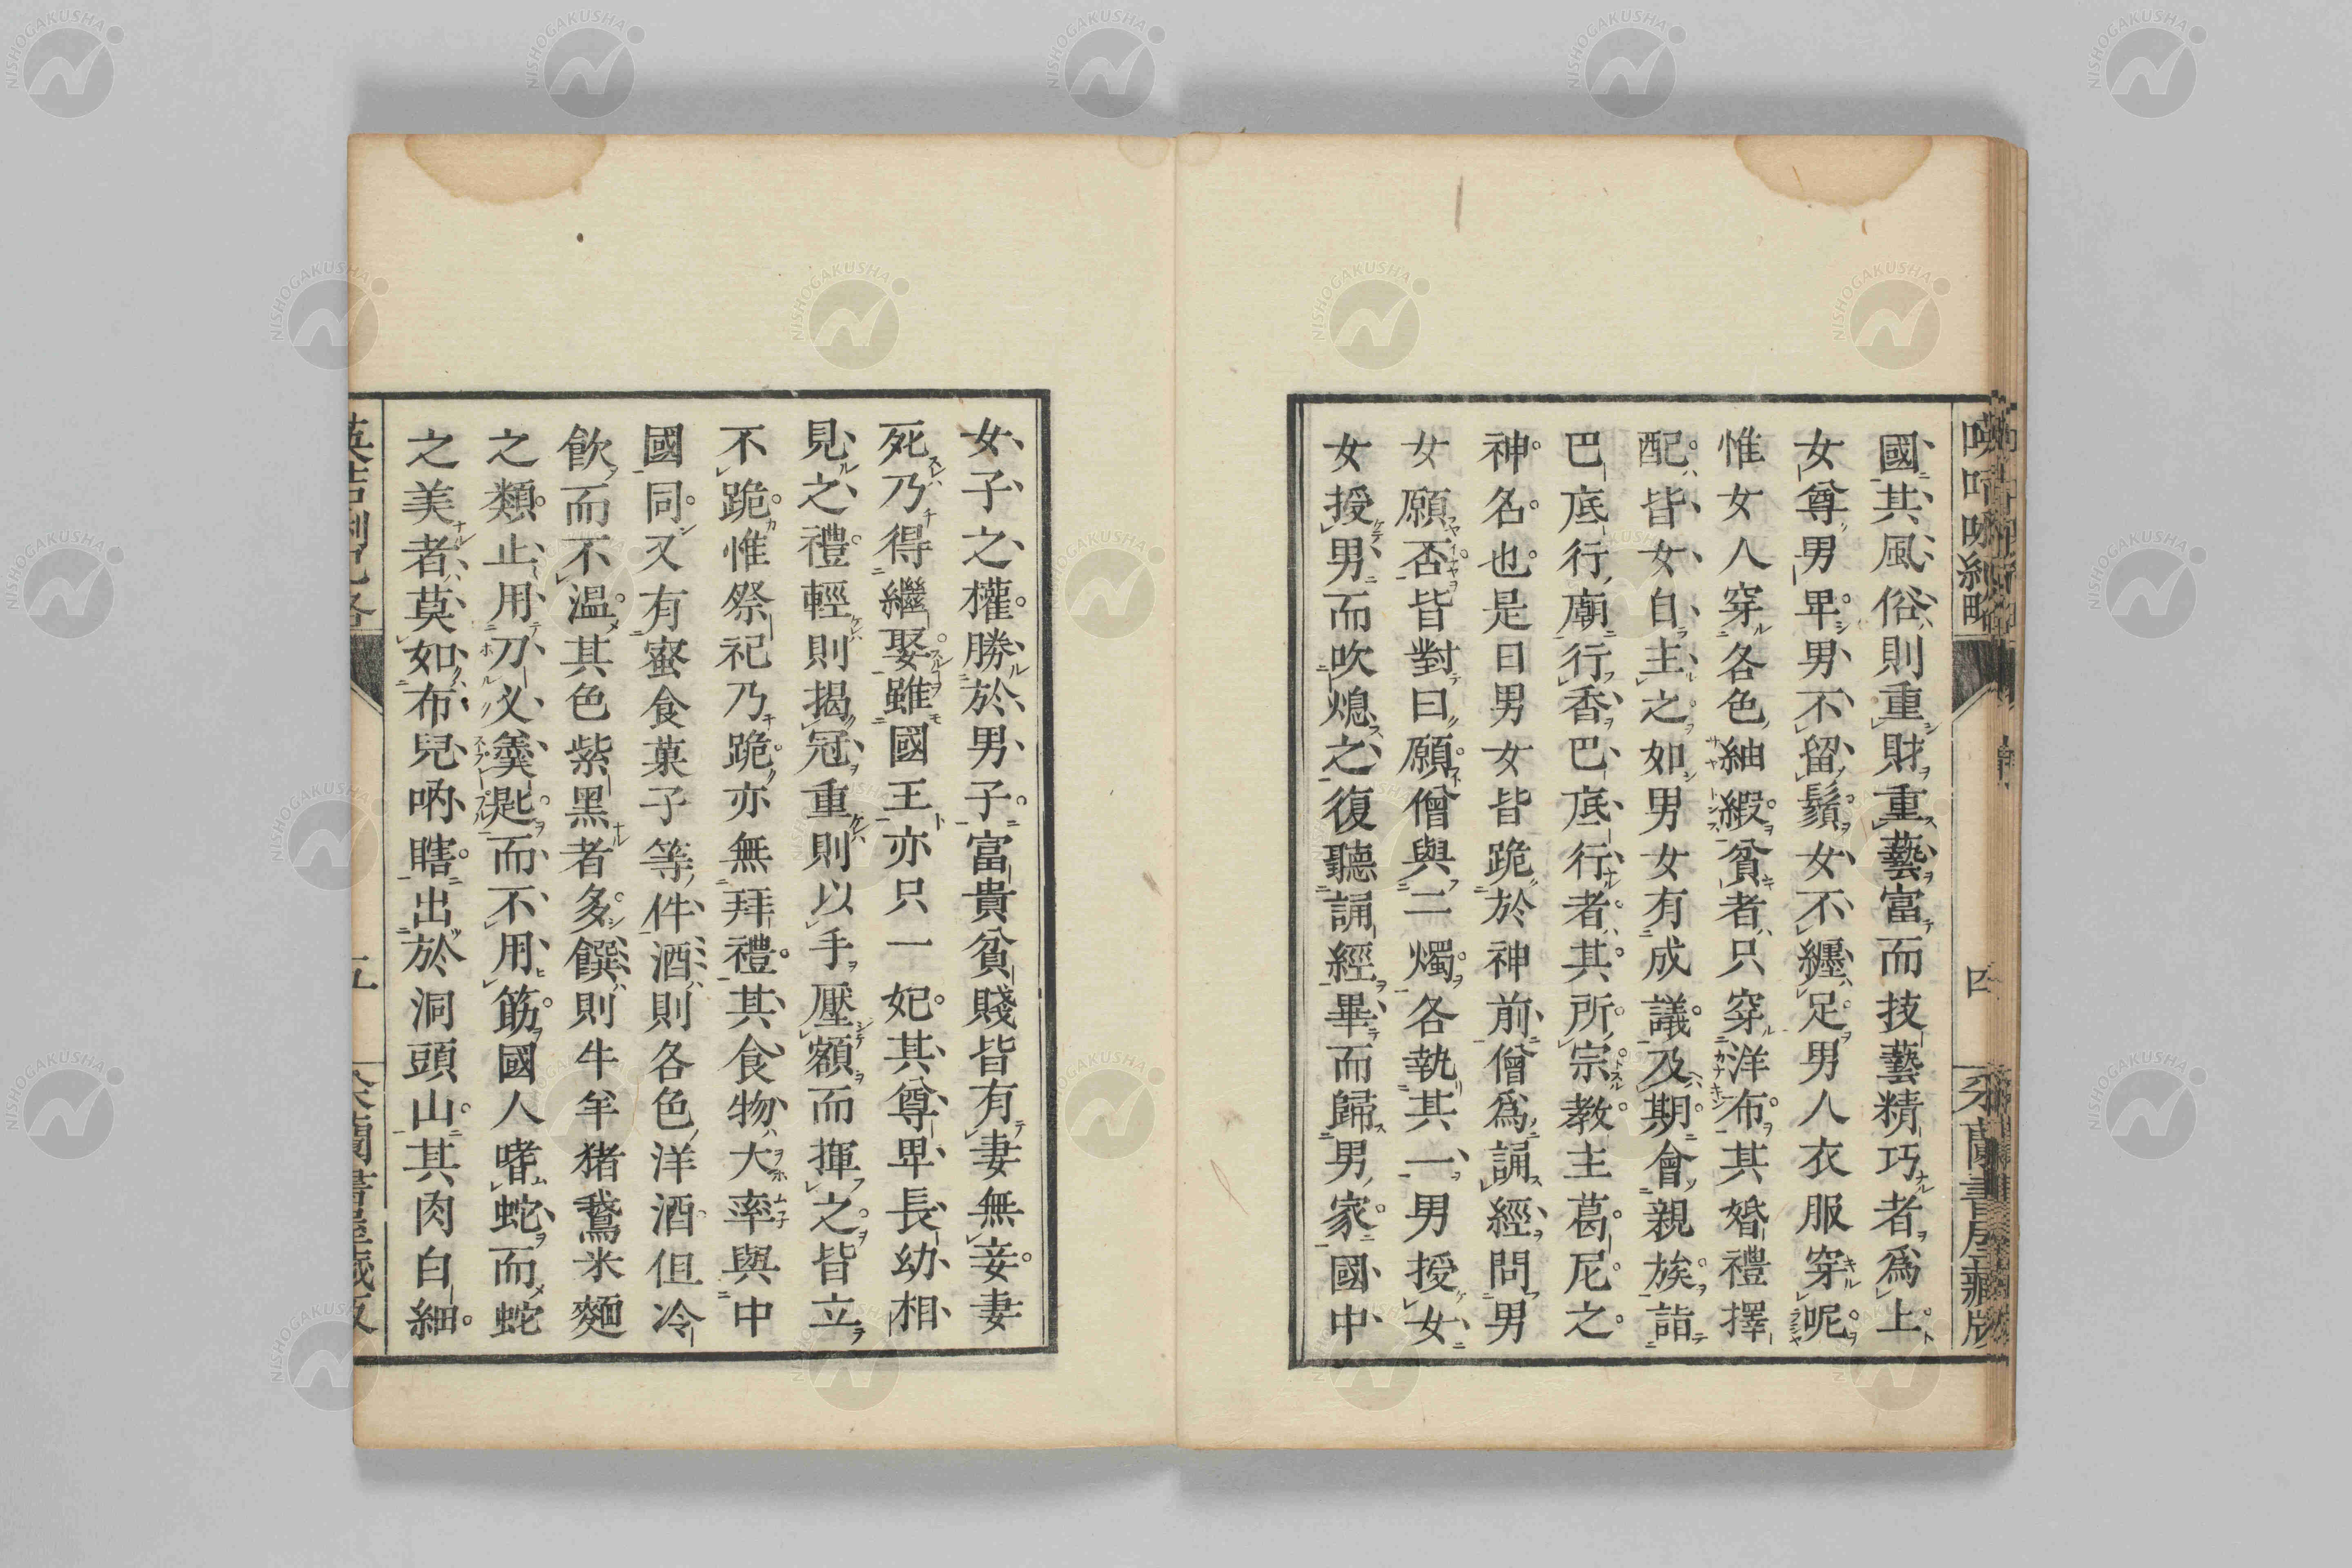 國其風俗則重財重藝富而技藝精巧者爲上
女尊男卑男不留鬚女不纏足男人衣服穿呢
惟女人穿各色紬緞貧者只穿洋布其婚禮擇
配皆女自主之如男女有成議及期會親族詣
巴底行廟行香巴底行者其所宗教主葛尼之
神名也是日男女皆跪於神前僧爲誦經問男
女願否皆對曰願僧與二燭各執其一男授女
女授男而吹熄之復聽誦經畢而歸男家國中
女子之權勝於男子富貴貧賤皆有妻無妾妻
死乃得繼娶雖國王亦只一妃其尊卑長幼相
見之禮輕則揭冠重則以手壓額而揮之皆立
不跪惟祭祀乃跪亦無拜禮其食物大率與中
國同又有蜜食菓子等件酒則各色洋酒但冷
飲而不溫其色紫黑者多饌則牛羊猪鵞米麵
之類止用刀乂羹匙而不用筯國人嗜蛇而蛇
之美者莫如布兒吶瞎出於洞頭山其肉白細
五
NISHOGAKUSHA